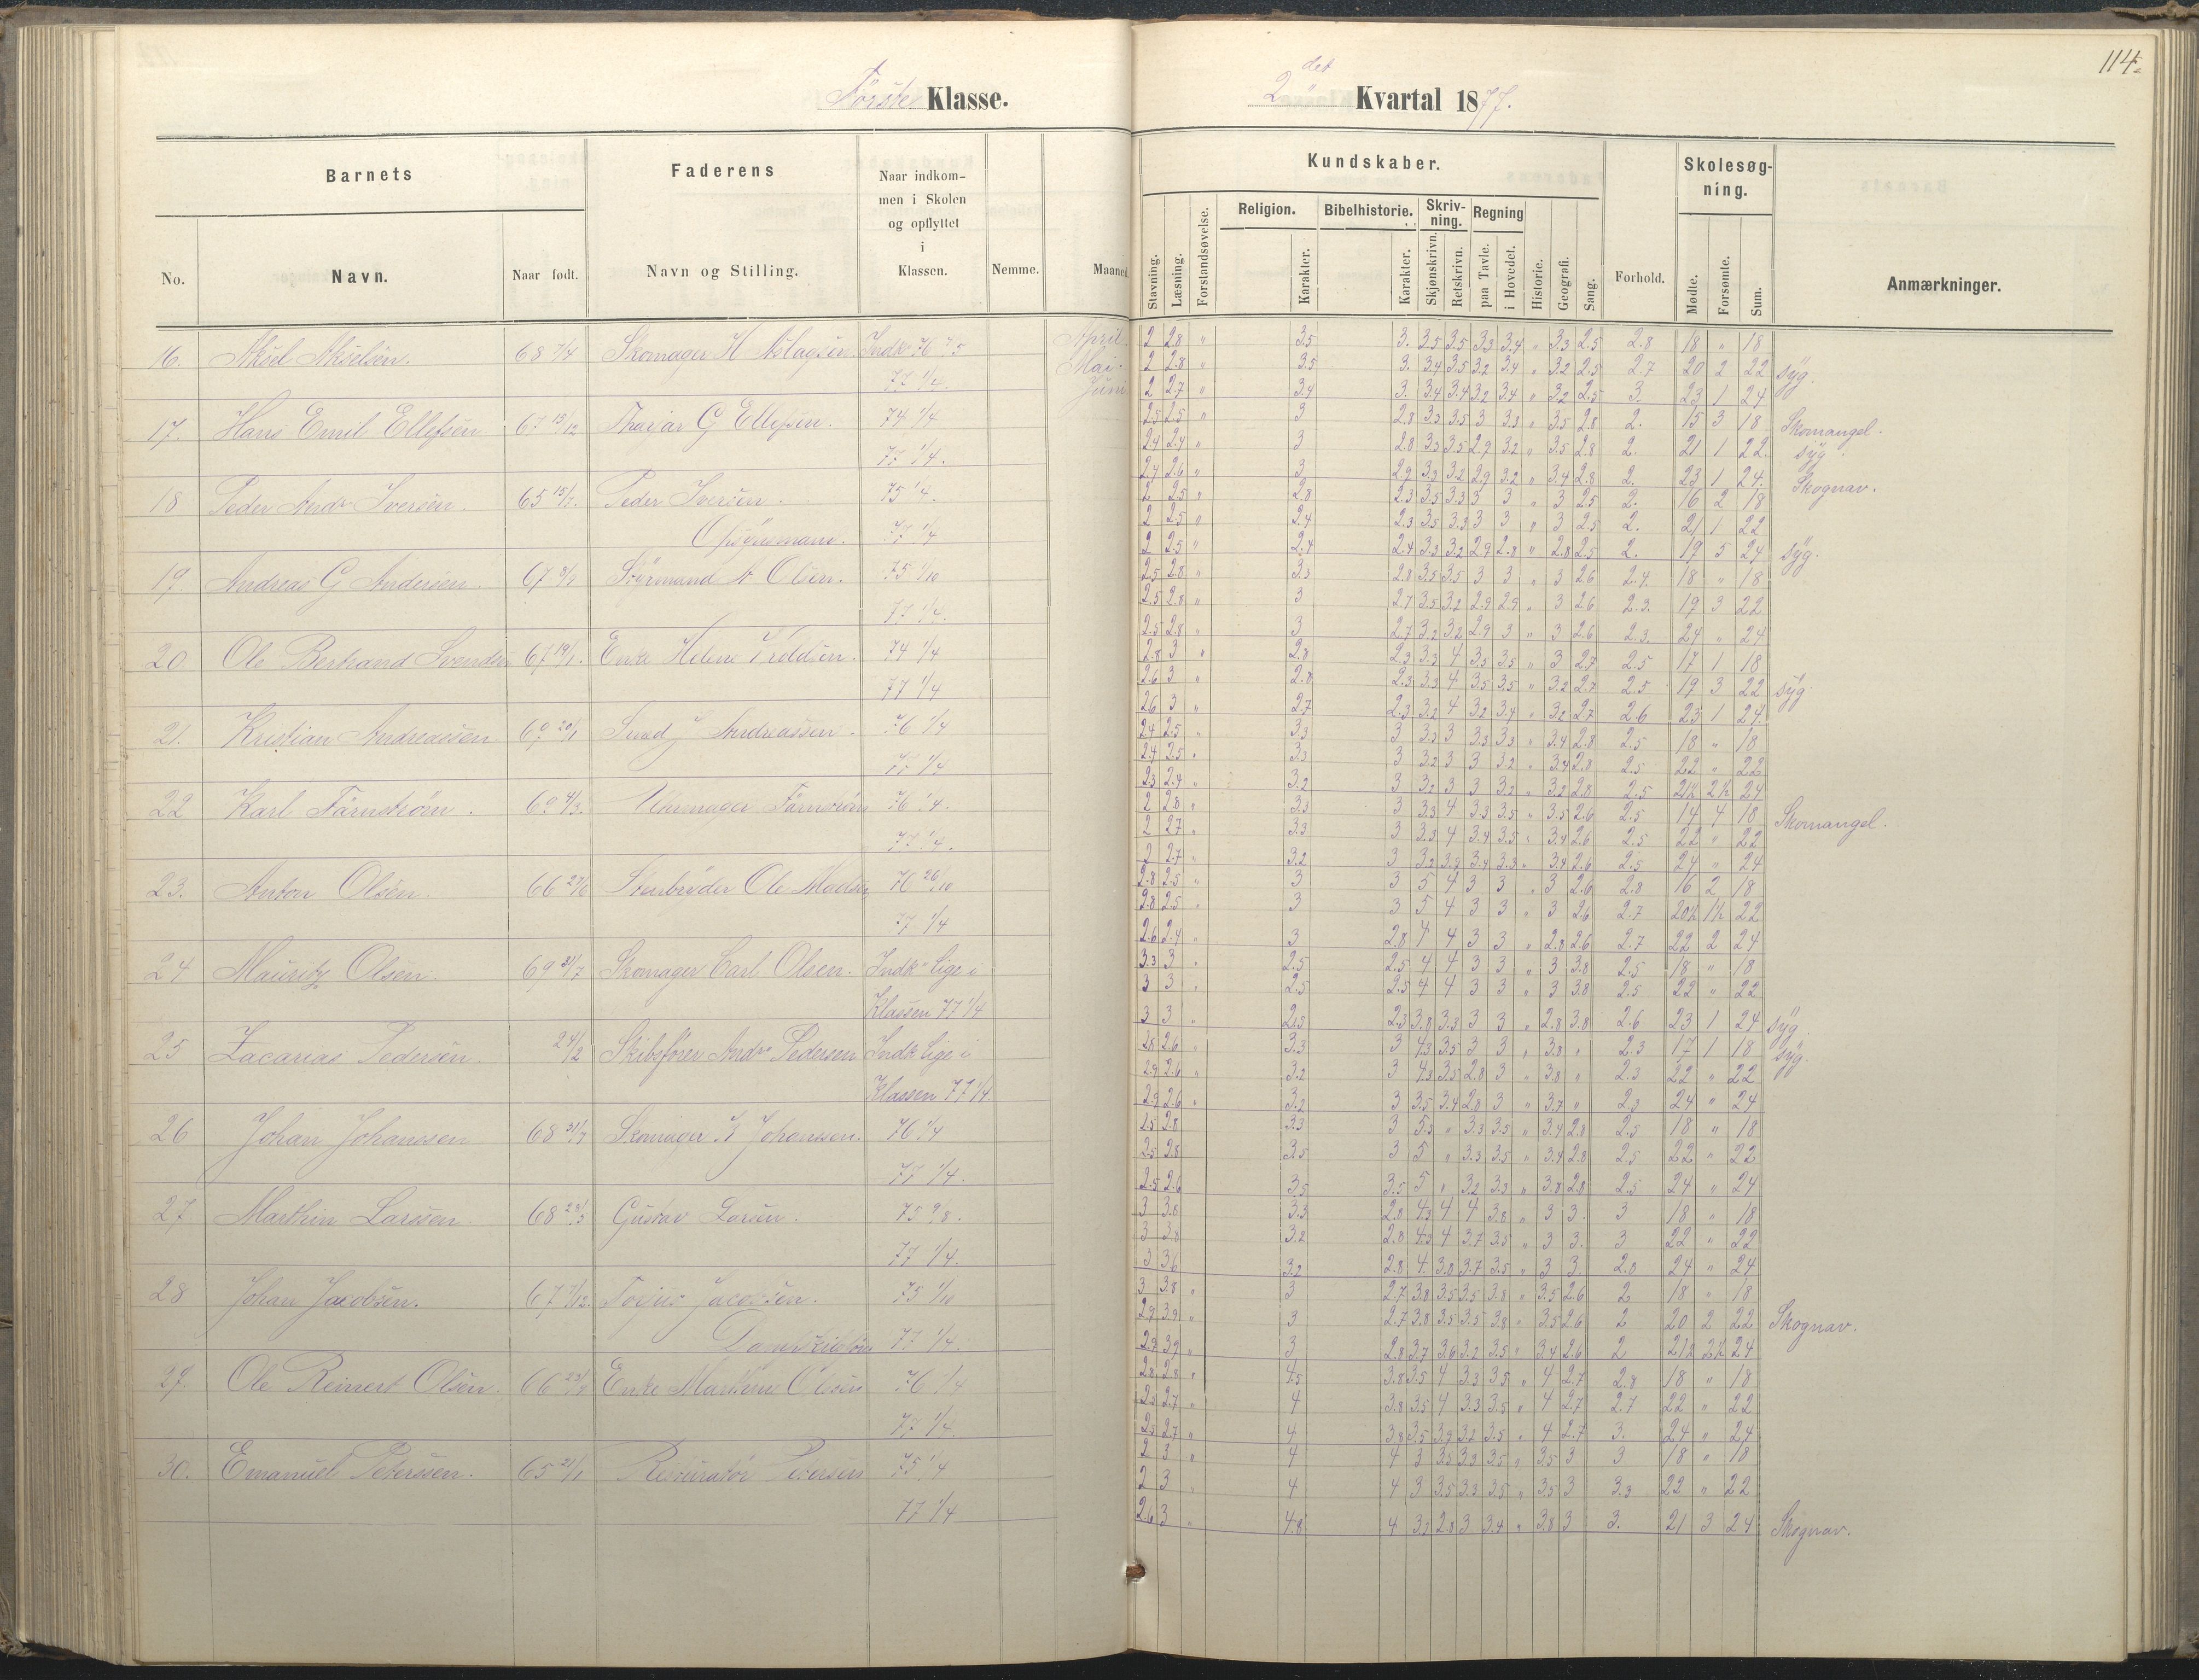 114.
Første Klasse.
2det Kvartal 1877.
Barnets
Faderens
Naar indkommen i Skolen og opflyttet i Klassen.
Nemme.
Maaned.
Kundskaber.
Forhold.
Skolesøgning.
Anmærkninger.
No.
Navn.
Naar født.
Navn og Stilling.
Stavning.
Læsning.
Forstandsøvelse.
Religion.
Karakter.
Bibelhistorie.
Karakter.
Skrivning.
Skjønskrivn.
Retskrivn.
Regning
paa Tavle.
i Hovedet.
Historie.
Geografi.
Sang.
Mødte.
Forsømte.
Sum.
16. Aksel Akselsen. 68 7/4 Skomager H Aslagsen Indk 76 7/5 April. 2 2.8 " 3.5 3. 3.5 3.5 3.3 3.4 " 3.3 2.5 2.8 18 " 18
77 1/4. Mai. 2 2.8 " 3.5 3. 3.4 3.5 3.2 3.4 " 3.2 2.5 2.7 20 2 22 syg.
Juni 2 2.7 " 3.4 3. 3.4 3.4 3.2 3.4 " 3.2 2.5 3. 23 1 24
17. Hans Emil Ellefsen 67 13/12 G Ellefsen. 74 1/4 2.5 2.5 " 3 2.8 3.3 3.5 3 3.3 " 3.5 2.8 2. 15 3 18 Skomangel.
77 1/4. 2.4 2.4 " 3 2.8 3.3 3.5 2.9 3.2 " 3.5 2.8 2. 21 1 22. syg
2.4 2.6 " 3 2.9 3.3 3.2 2.9 3.2 " 3.4 2.8 2. 23 1 24. Skognav.
18 Peder Andr Iversen. 65 15/7. Peder Iversen. 75 1/4. 2 2.5 " 2.8 2.3 3.5 3.3 3 3 " 3 2.5 2. 16 2 18
Opsynsmann. 77 1/4 2 2.5 " 2.4 2.3 3.5 3.3 3 3 " 3 2.5 2. 21 1 22
2 2.5 " 2.4 2.4 3.3 3.2 2.9 2.8 " 2.8 2.5 2. 19 5 24 syg.
19. Andreas G Andersen. 67 3/9 Styrmand A Olsen. 75 1/10 2.5 2.8 " 3.3 2.8 3.5 3.5 3 3 " 3 2.6 2.4. 18 " 18
77 1/4. 2.5 2.8 " 3 2.7 3.5 3.2 2.9 2.9 " 3 2.6 2.3. 19 3 22
2.5 2.8 " 3 2.7 3.2 3.2 2.9 3 " 3 2.6 2.3. 24 " 24
20. Ole Bertrand Svendsen 67 19/1. Enke Helene 74 1/4 2.8 3 " 2.8 2.3 3.3 4 3.5 3.5 " 3 2.7 2.5 17 1 18
77 1/4 2.6 3 " 2.8 2.3 3.3 4 3.5 3.5 " 3.2 2.7 2.5 19 3 22 syg
2.6 3 " 2.7 2.3 3.2 4 3.2 3.4 " 3.2 2.7 2.6 23 1 24
21. Kristian Andreassen 67 20/1 Andreassen. 76 1/4 2.4 2.5 " 3.3 3 3.3 3 3.3 3.3 " 3.4 2.8 2.5 18 " 18
77 1/4 2.4 2.5 " 3.3 3 3.2 3 3 3.2 " 3.4 2.8 2.5 22 " 22
2.3 2.4 " 3.2 3 3.2 3 3 3.2 " 3.2 2.8 2.5 21½ 2½ 24
22 Karl Färnström. 69 4/3. Uhrmager Färnström 76 1/4. 2 2.8 " 3.3 3 3.3 4 3.3 3.5 " 3.5 2.6 2.5 14 4 18 Skomangel.
77 1/4. 2 2.7 " 3.3 3 3.3 4 3.4 3.5 " 3.4 2.6 2.5 22 " 22
2 2.7 " 3.2 3 3.2 3.7 3.4 3.3 " 3.4 2.6 2.5 24 " 24
23. Anton Olsen. 66 27/6 Stenbryder Ole Madsen 76 26/10 2.8 2.5 " 3 3 5 4 3 3 " 3 2.6 2.8 16 2 18
77 1/4 2.8 2.5 " 3 3 5 4 3 3 " 3 2.6 2.7 20½ 1½ 22
2.6 2.4 " 3 2.8 4 4 3 3 " 2.8 2.6 2.7 22 2 24
24 Mauritz Olsen. 69 31/7 Skomager Carl Olsen. Indk lige i 3.3 3 " 2.5 2.5 4 4 3 3 " 3 3.8 2.5 18 " 18
Klassen 77 1/4 3 3 " 2.5 2.5 4 4 3 3 " 3 3.8 2.5 22 " 22
3 3 " 2.5 2.3 3.8 3.3 3 3 " 2.8 3.8 2.6 23 1 24 syg
25 Zacarias Pedersen. 24/2 Skibsfører Andrs Pedersen Indk lige i 2.8 2.6 " 3.3 3 4.3 3.5 3 3 " 3.8 " 2.3 17 1 18 syg.
Klassen 77 1/4 2.9 2.6 " 3.2 3 4.3 3.5 2.8 3 " 3.8 " 2.3 22 " 22
2.9 2.6 " 3.2 3 3.5 3.4 2.8 3 " 3.7 " 2.3 24 " 24
26 Johan Johanssen 68 31/7 Skomager J Johanssen. 76 1/4 2.5 2.8 3.3 3 5.3 " 3.3 3.5 " 3.4 2.8 2.5 18 " 18
77 1/4. 2.5 2.8 3.5 3 5 " 3.3 3.5 " 3.4 2.8 2.5 22 " 22
2.5 2.6 3.5 3.5 5 " 3.2 3.3 " 3.8 2.8 2.5 24 " 24
27 Marthin Larssen. 68 23/5 Gustav Larsen. 75 9/8. 3 3.8 3.3 2.8 4.3 4 4 3.8 " 3 3. 3 18 " 18
77 1/4. 3 3.8 3.2 2.8 4.3 4 3.7 3.5 " 3 3. 3 22 " 22
3 3.6 3.2 2.8 4. 3.8 3.7 3.5 " 3 3. 2.8 24 " 24
28 Johan Jacobsen. 67 7/12. Torjus Jacobsen. 75 1/10 3 3.8 " 3 2.7 3.8 3.5 3.5 3.8 " 3.5 2.6 2 18 " 18
77 1/4. 2.9 3.9 " 3 2.7 3.8 3.5 3.5 3.8 " 3.5 2.6 2 20 2 22 Skognav.
2.9 3.9 " 3 2.8 3.7 3.6 3.2 3.5 " 3.4 2.6 2 21½ 2½ 24
29. Ole Reinert Olsen. 66 Enke Marthine Olsen 76 1/4 2.8 2.8 " 4.5 3.8 3.5 4 3.3 3.5 " 4 2.7 2.8 18 " 18
77 1/4. 2.5 2.7 " 4 3.8 3.5 4 3.3 3.5 " 4 2.7 2.7 22 " 22
2.5 2.7 " 4 3.8 3.5 3.9 3.2 3.5 " 4 2.7 3. 24 " 24
30. Emanuel Peterssen. 65 21/1 Resturatør Petersen 75 1/4 2 3 " 4 4 3 3.5 3.3 3.5 " 3.5 3 3 18 " 18
77 1/4 2 3 " 4 4 3 3.5 3.3 3.5 " 3.5 3 3.3 22 " 22
2.6 3 " 4.8 4 3.3 2.8 3 3.4 " 3.8 3 3. 21 3 24 Skognav.